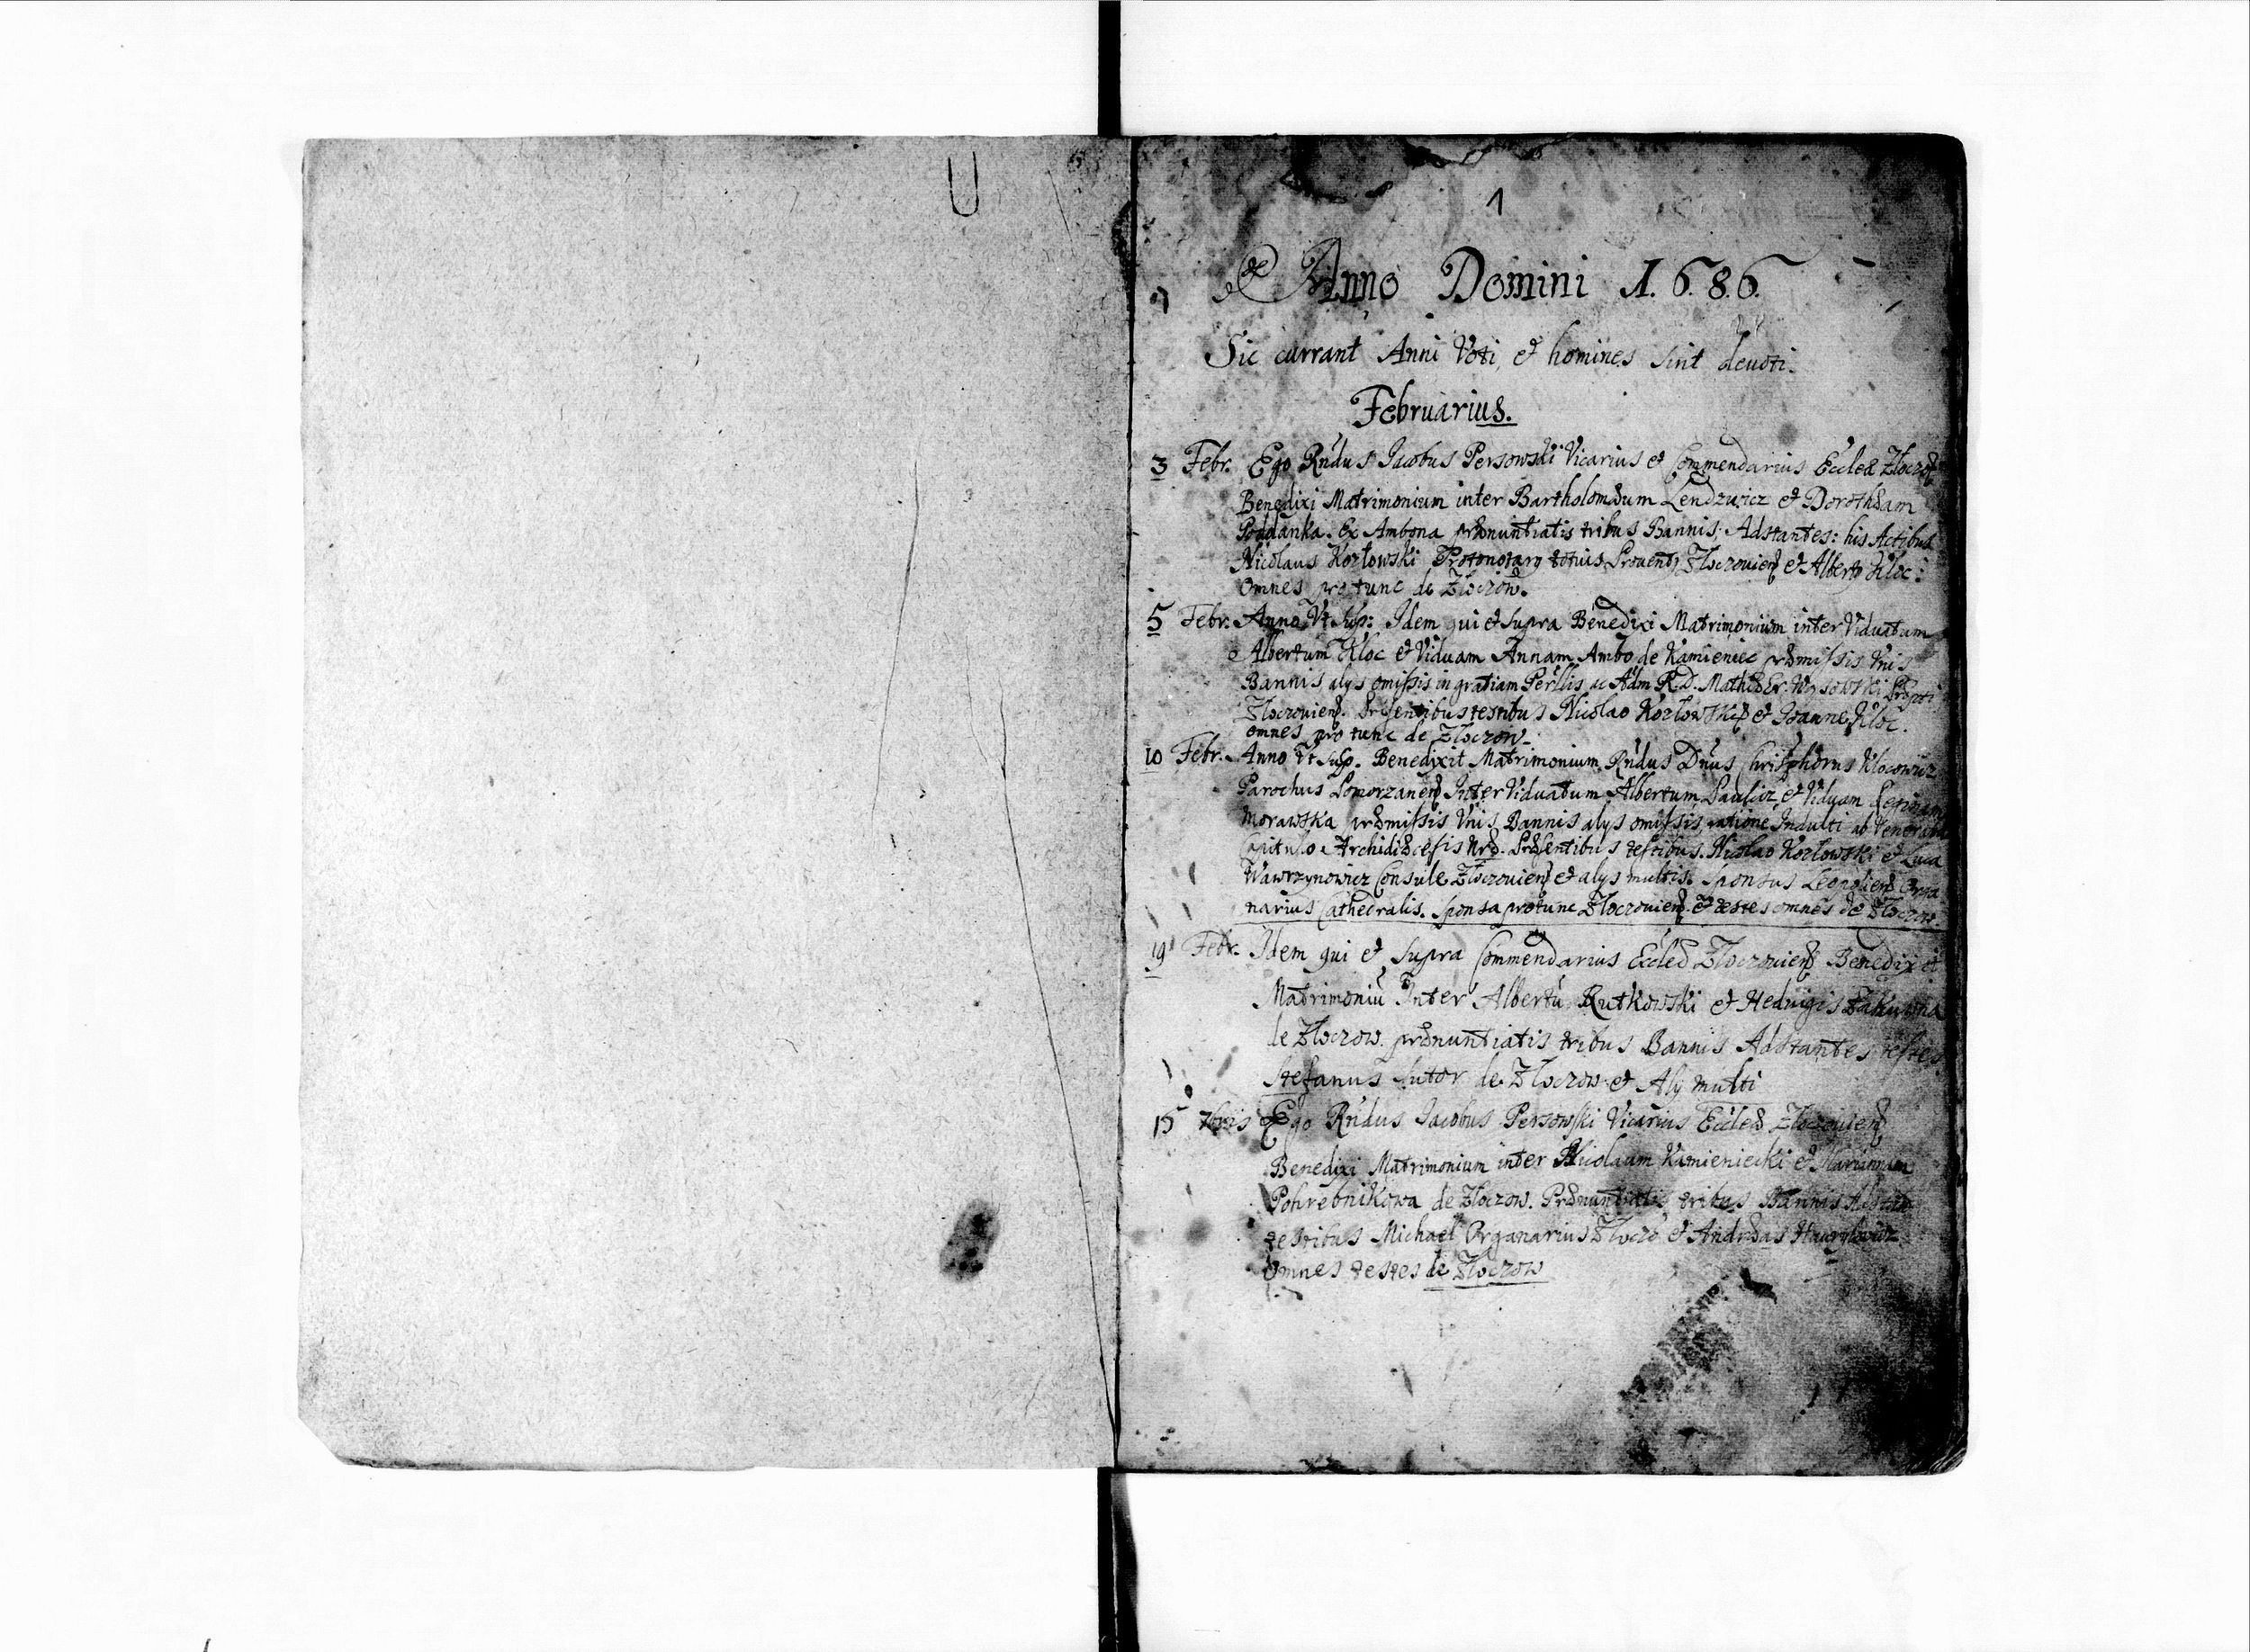 1
Anno Domini 1.6.8.6.
Sic currant Anni Voti, et homines sint devoti.
Februarius.
3 Febr. Ego Rndus Jacobus Persowski Vicarius et Commendarius Eccleæ
Benedixi Matrimonium inter Bartholomæum Lendzwicz et Dorothæam
Poddanka. Ex Ambona prænuntiatis tribus Bannis. Adstantes: his Actibus
Nicolaus Kozłowski et Alberto Kloc:
Omnes pro tunc de Złoczow.
5 Febr. Anno Vt Sup: Idem qui et supra Benedixi Matrimonium inter Viduatum
Albertum Kloc et Viduam Annam Ambo de Kamieniec præmissis Vnis
Bannis alys omissis in gratiam Perillis ac Adm R.D.
præsentibus testibus Nicolao et Joanne Kloc.
omnes pro tunc de Złoczow.
10 Febr. Anno Vt Sup. Benedixit Matrimonium Rndus Dnus Klocowicz
Parochus Inter Viduatum Albertum et Viduam
Morawska præmissis Vnis Bannis alys omissis ratione Indulti ab
Capitulo Archidiæcesis Præsentibus testibus. Nicolao Kozłowski et Luca
Wawrzynowicz Consule et alys multis. Sponsus Orga
narius Cathedralis. Sponsa protunc et testes omnes de Złoczow.
19 Febr. Idem qui et supra Commendarius Eccleæ Benedixi
Matrimoniũ Inter Albertũ Rutkowski et Hedvigis
de Złoczow. prænuntiatis tribus Bannis Adstantes testes
Stefanus Sutor de Złoczow et Aly multi
15 7bris Ego Rndus Jacobus Persowski Vicarius Eccleæ
Benedixi Matrimonium inter Nicolaum Kamieniecki et Mariannam
Pohrebnikowa de Złoczow. Prænuntiatis tribus Bannis
testibus Michael Organarius et Andræas
Omnes testes de Złoczow